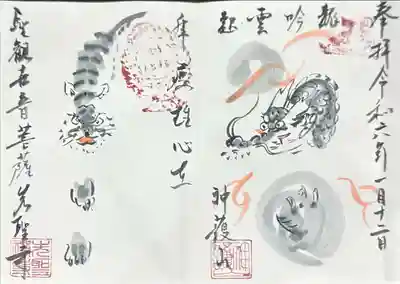 奉拝令和六年一月十二日
龍吟雲起
神護山
虎瘦雄心在
聖観世音菩薩先聖寺